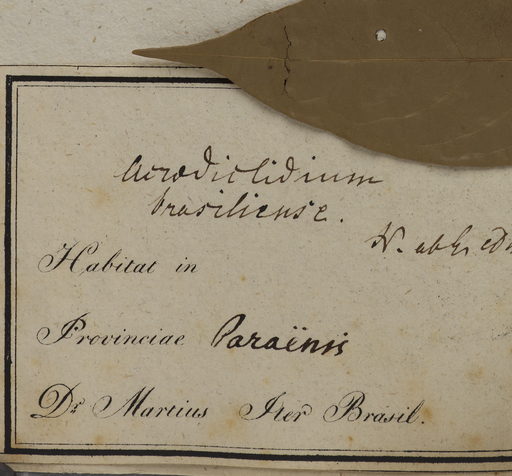 Acrodiclidium
brasiliense.
N. ab E.
Habitat in
Provinciae Paraënsis
Dr Martius Iter Brasil.